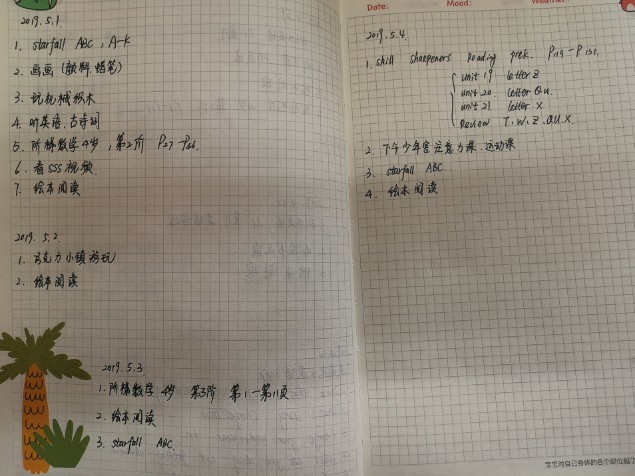 2019.5.1.
1. starfall ABC, A-K
2. 画画(颜料.蜡笔)
3. 玩机械积木
4. 听英语、古诗词
5. 阶梯数学4岁,第2阶 P27-P36.
6. 看SSS视频
7. 绘本阅读
2019.5.2.
1. 巧克力小镇游玩
2. 绘本阅读
2019.5.3
1. 阶梯数学 4岁 第3阶 第1-第11页
2. 绘本阅读
3. starfall ABC.
Date: Mood: Weather:
2019.5.4.
1. skill sharpeners Reading prek. P119-P131.
unit 19 letter Z
unit 20 letter Qu.
unit 21 letter X
Review T.W.Z.QU.X.
2. 下午少年宫注意力课、运动课
3. starfall ABC
4. 绘本阅读
宝宝对自己身体的各个部位